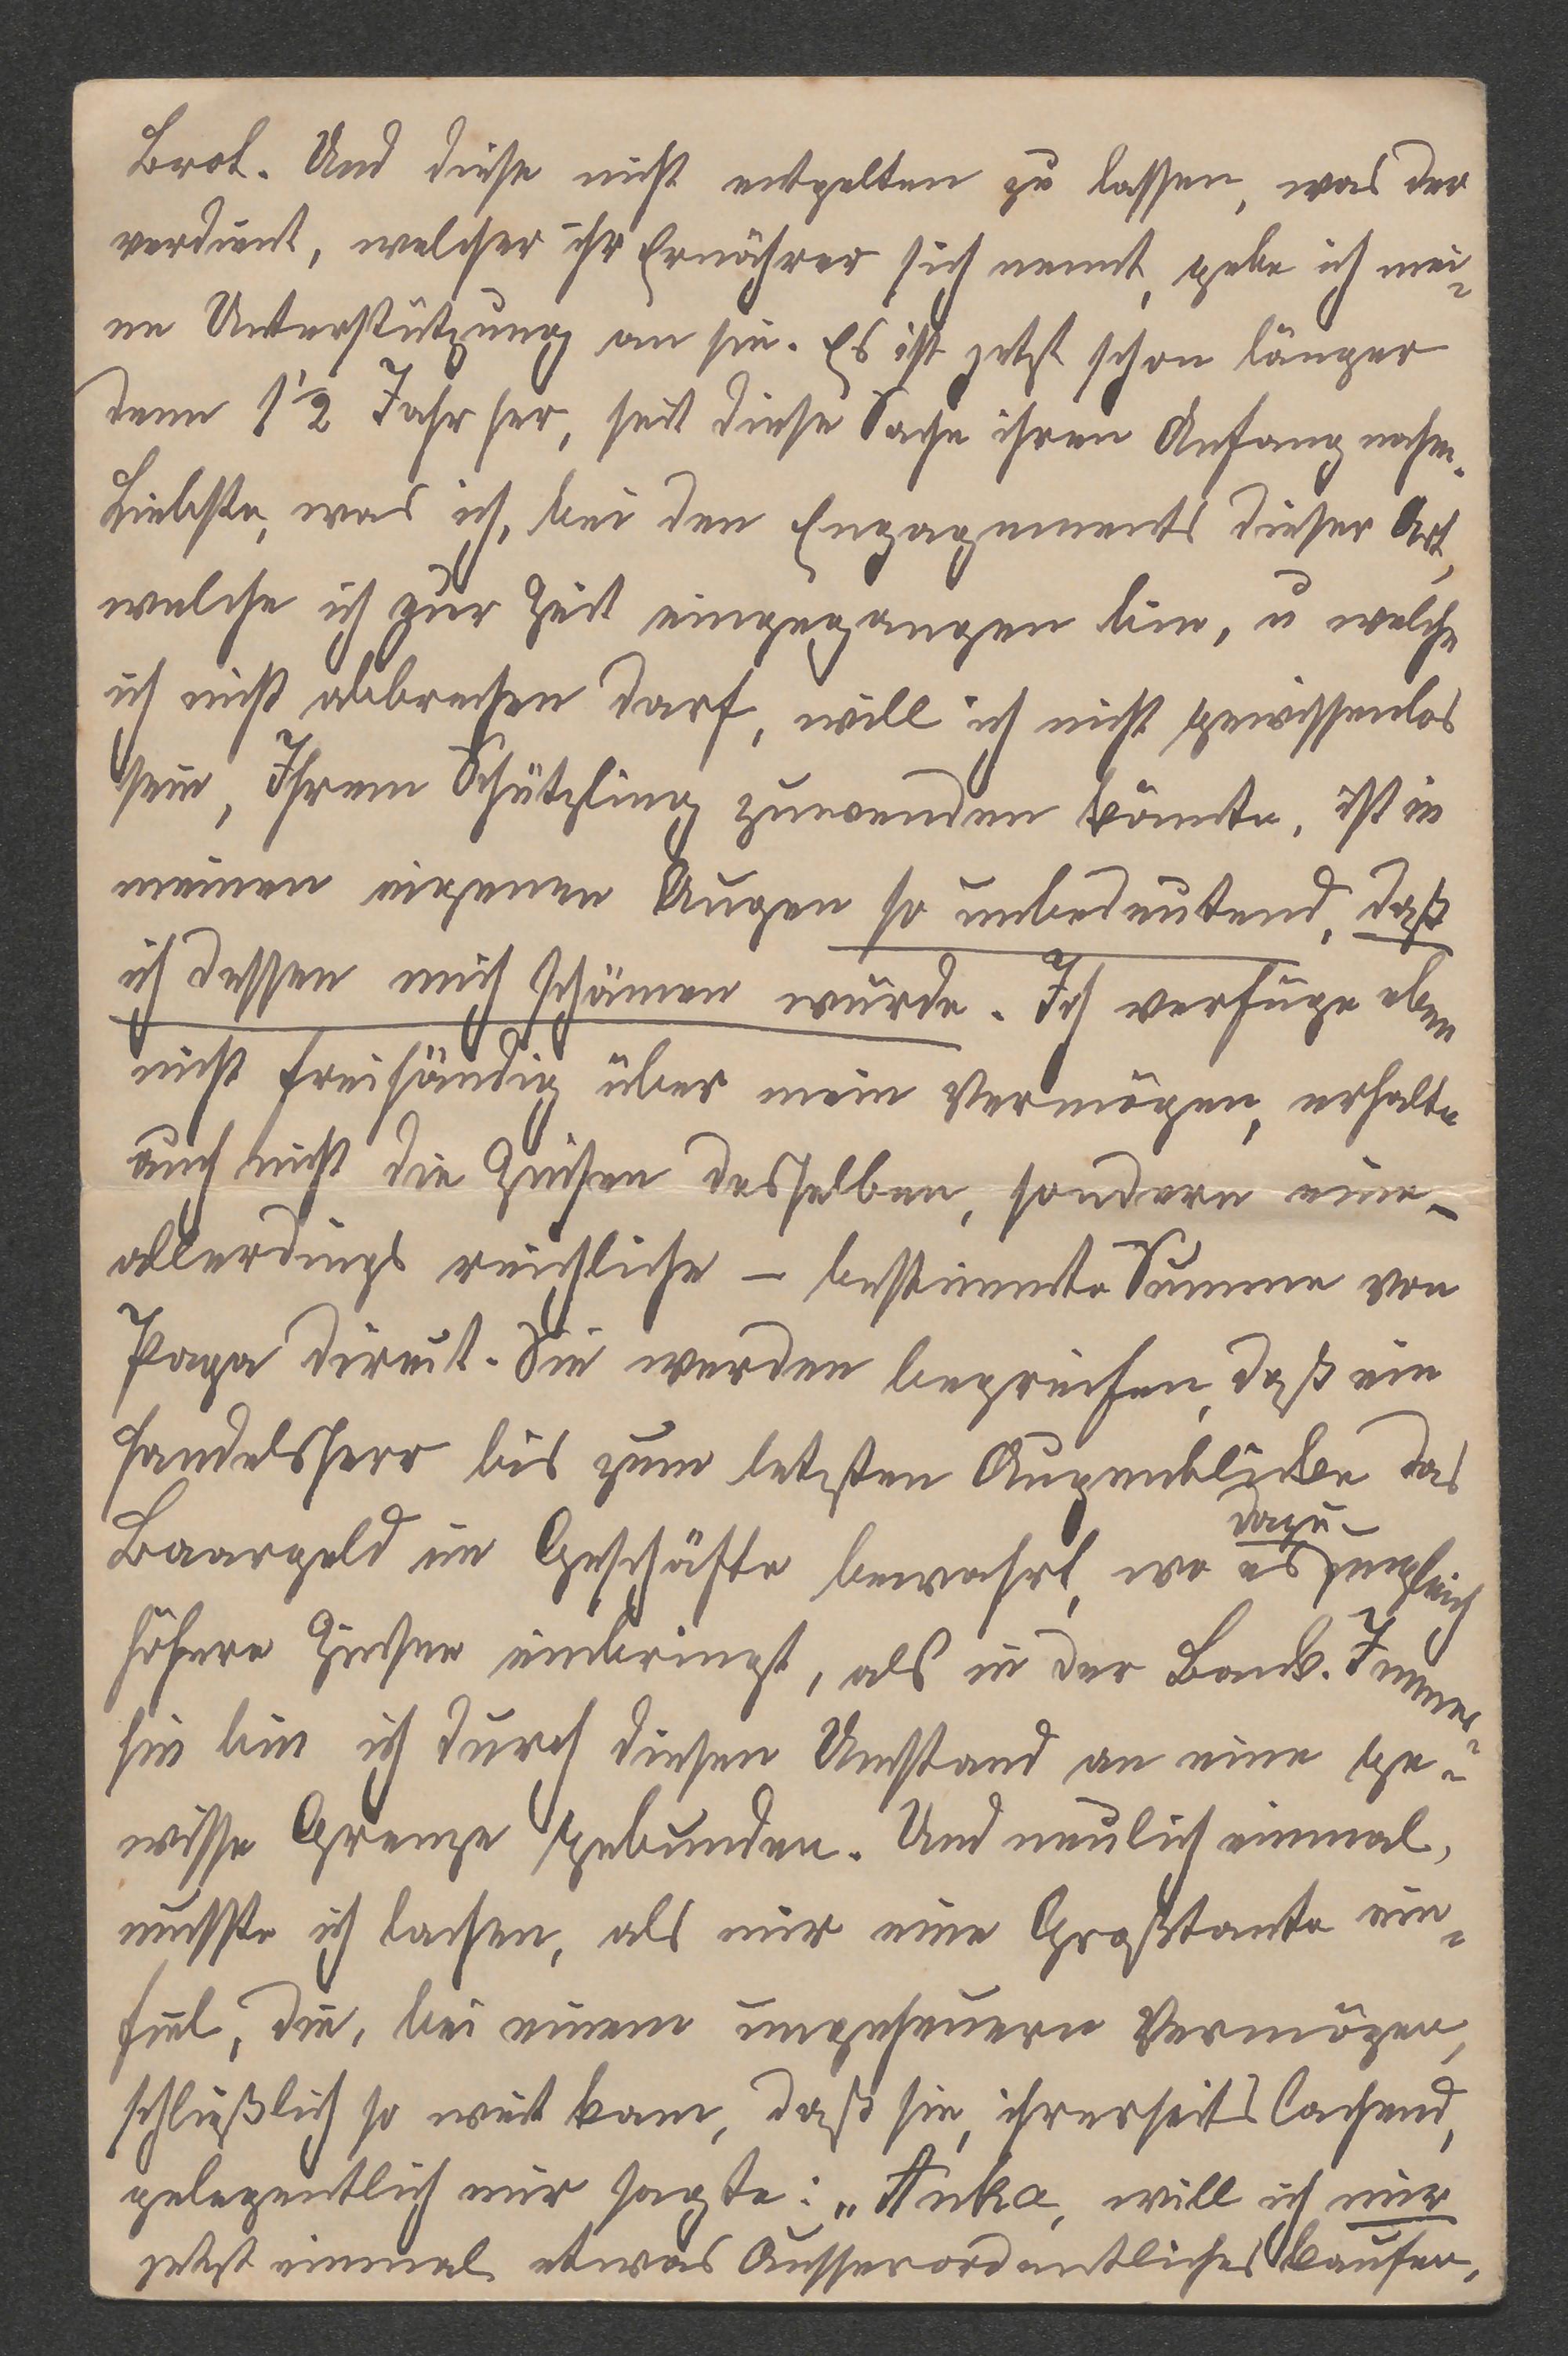 Brot. Und diese nicht entgelten zu lassen, was der
verdient, welcher ihr Ernährer sich nennt, gebe ich mei-
ne Unterstützung an sie. Es ist jetzt schon länger
denn 1 1/2 Jahr her, seit diese Sache ihren Anfang nahm.
Liebste, was ich, bei den Engagements dieser Art,
welche ich zur Zeit eingegangen bin, u welche
ich nicht abbrechen darf, will ich nicht gewissenlos
sein, Ihrem Schützling zuwenden könnte, ist in
meinen eigenen Augen so unbedeutend, daß
ich dessen mich schämen würde. Ich verfüge eben
nicht freihändig über mein Vermögen, erhalte
auch nicht die Zinsen desselben, sondern eine –
allerdings reichliche – bestimmte Summe von
Papa direct. Sie werden begreifen, daß ein
Handelsherr bis zum letzten Augenblicke das
Baargeld im Geschäfte bewahrt, wo es dazu ungleich
höhere Zinsen einbringt, als in der Bank. Immer-
hin bin ich durch diesen Umstand an eine ge-
wisse Grenze gebunden. Und neulich einmal,
musste ich lachen, als mir eine Großtante ein-
fiel, die, bei einem ungeheuern Vermögen,
schließlich so weit kam, daß sie, ihrerseits lachend,
gelegentlich mir sagte: „Anka, will ich mir
jetzt einmal etwas Ausserordentliches kaufen,